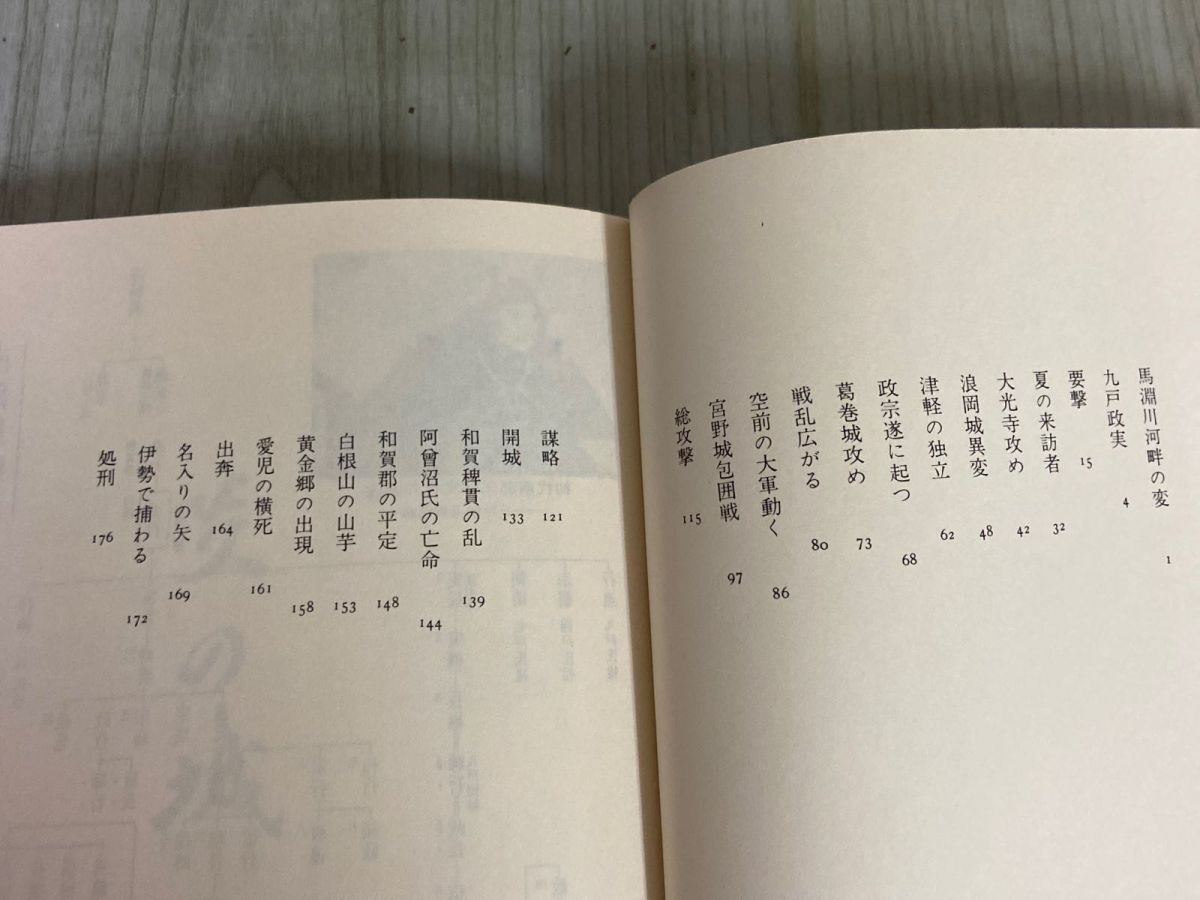 馬淵川河畔の変 1
九戸政実 4
要撃 15
夏の来訪者 32
大光寺攻め 42
浪岡城異変 48
津軽の独立 62
政宗遂に起つ 68
葛巻城攻め 73
戦乱広がる 80
空前の大軍動く 86
宮野城包囲戦 97
総攻撃 115
謀略 121
開城 133
和賀稗貫の乱 139
阿曾沼氏の亡命 144
和賀郡の平定 148
白根山の山芋 153
黄金郷の出現 158
愛児の横死 161
出奔 164
名入りの矢 169
伊勢で捕わる 172
処刑 176
の城